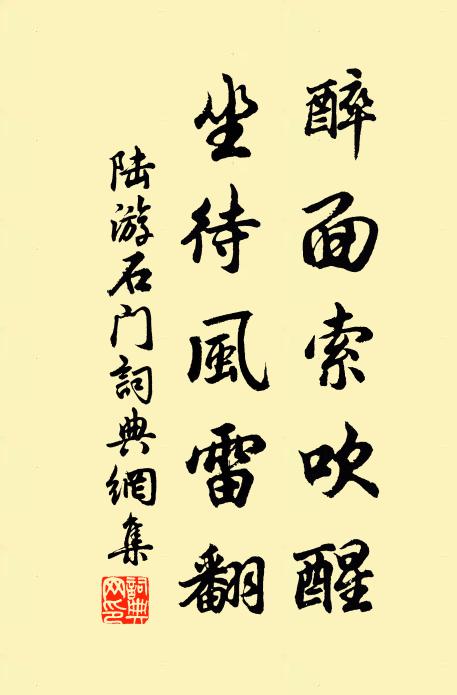 醉面索吹醒
坐待風雷翻
陆游石门詞典網集
詞典网印